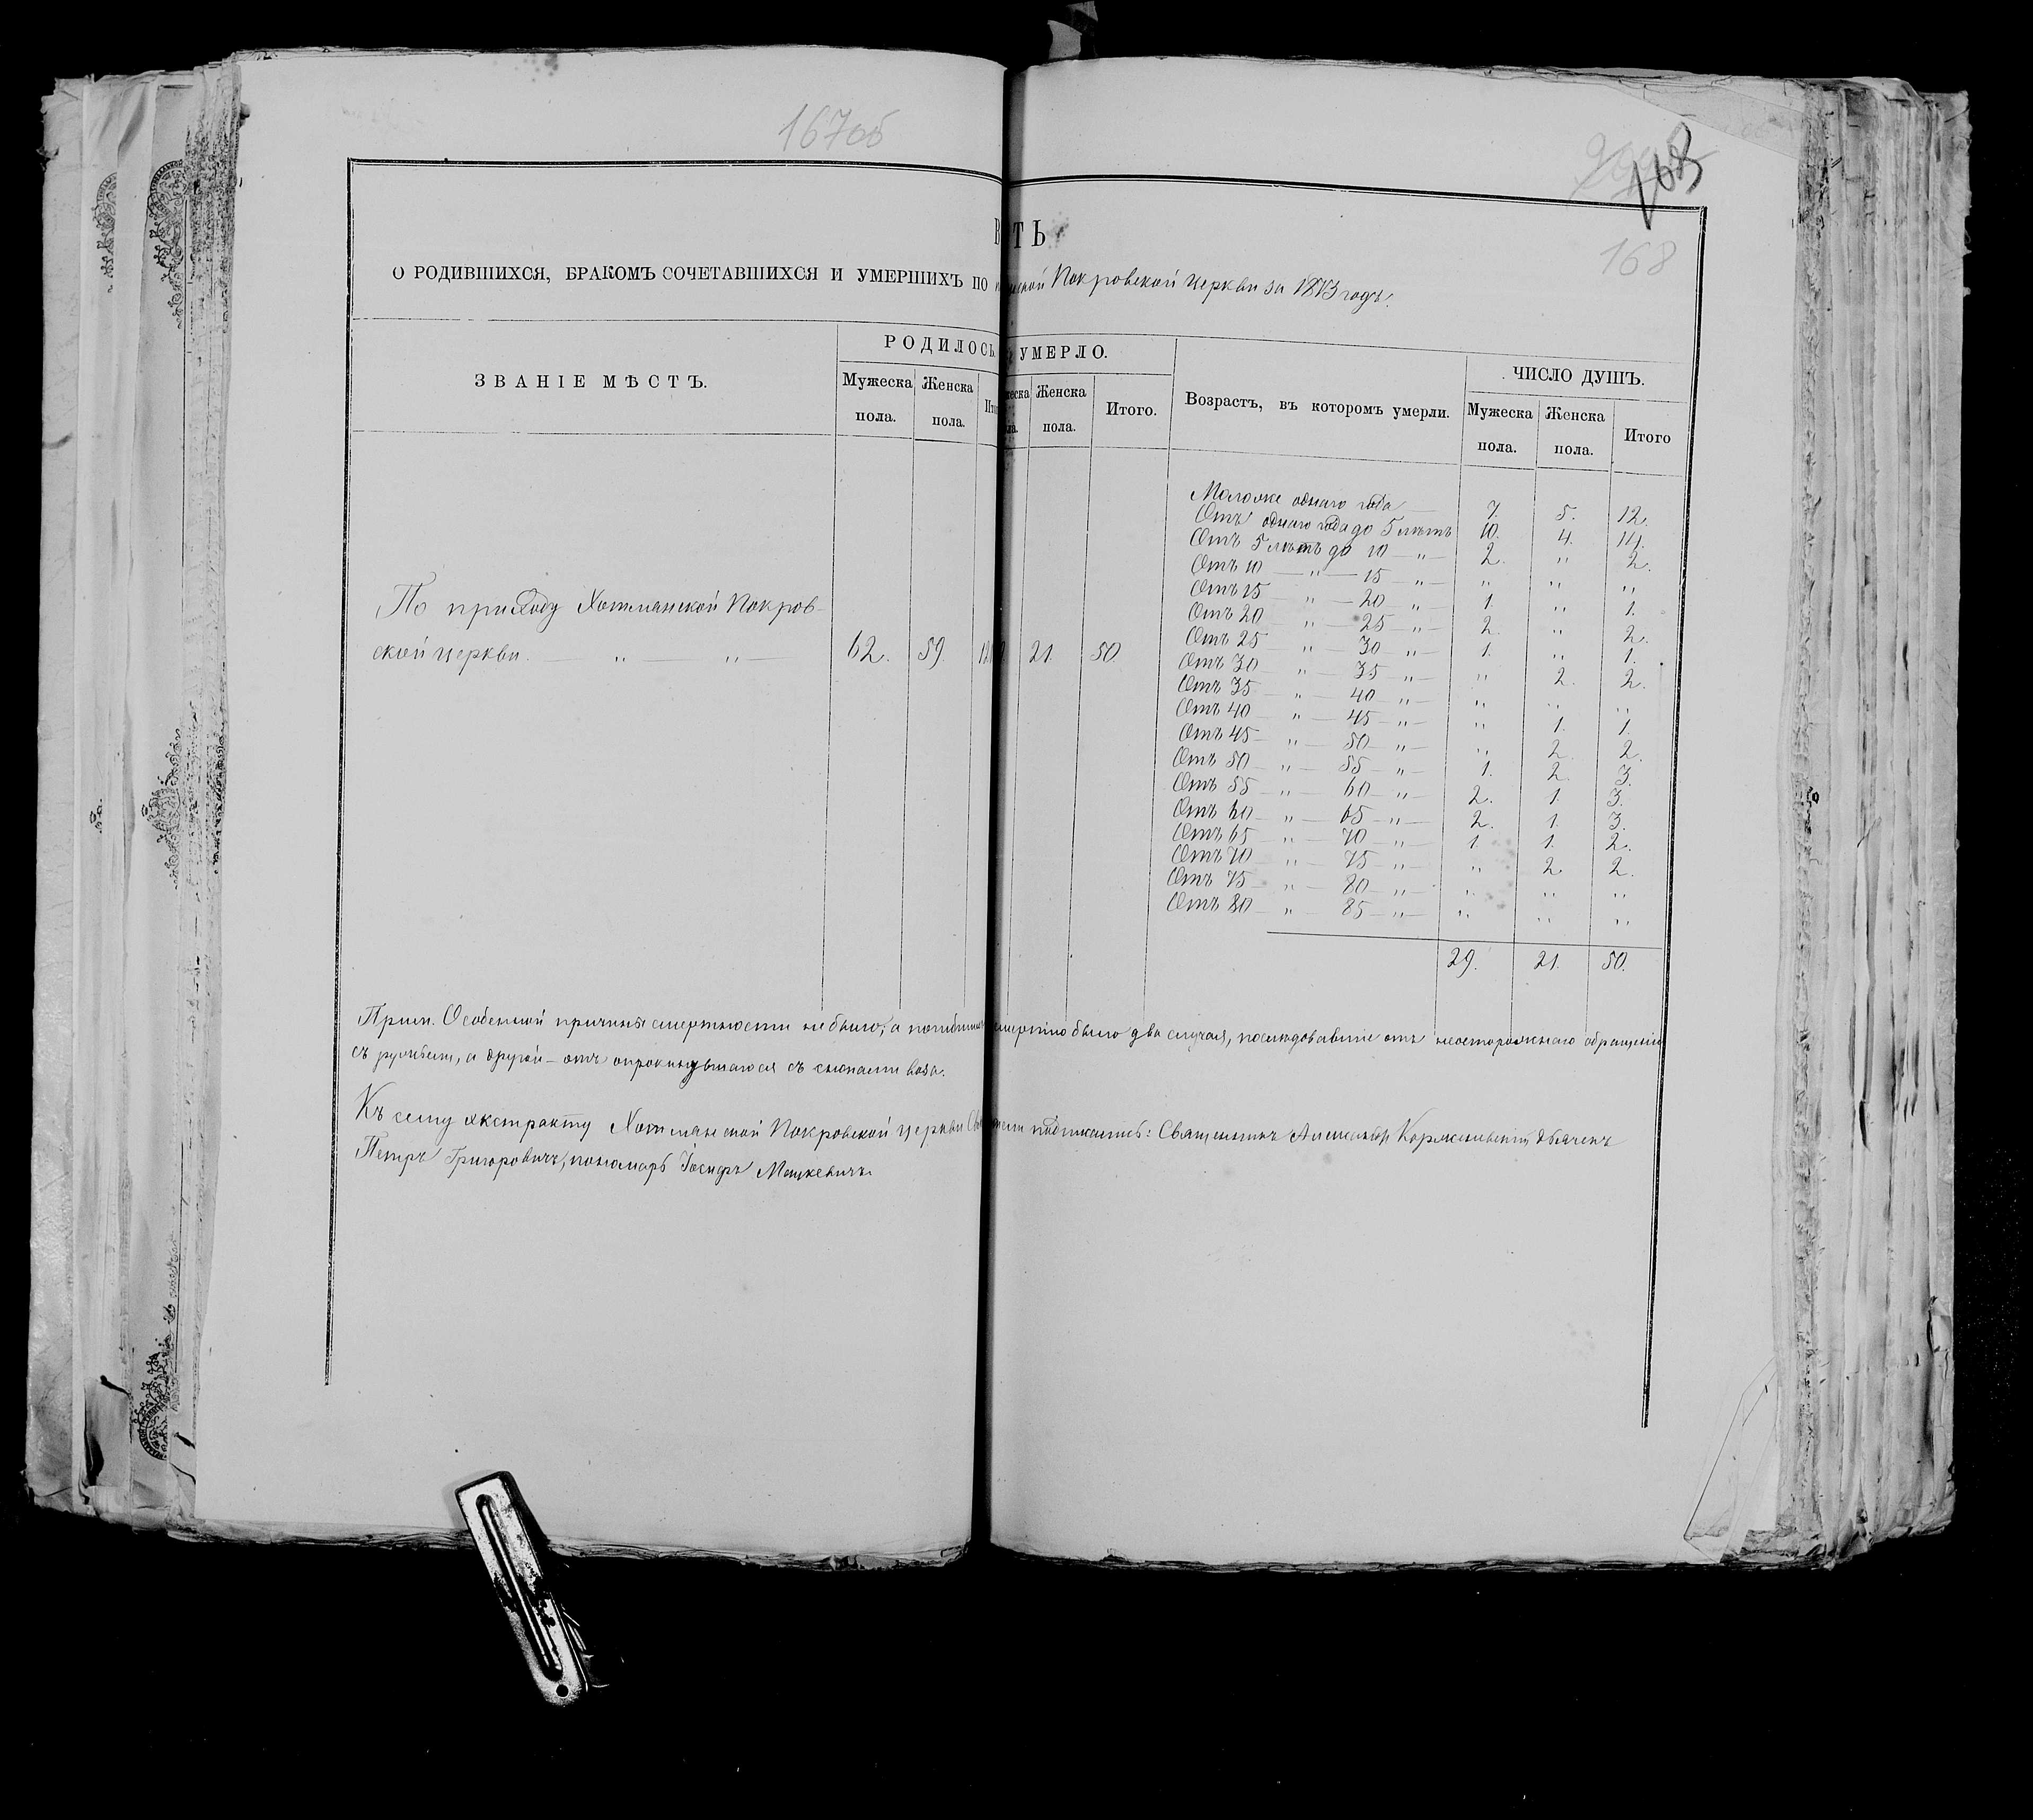 167об
168
168
В ТЬ
О РОДИВШИХСЯ, БРАКОМЪ СОЧЕТАВШИХСЯ И УМЕРШИХЪ ПО Покровской церкви за 1873 годъ.
ЗВАНІЕ МѢСТЪ.
РОДИЛОСЬ
Мужеска пола.
Женска пола.
УМЕРЛО.
Женска пола.
Итого.
Возрастъ, въ которомъ умерли.
ЧИСЛО ДУШЪ.
Мужеска пола.
Женска пола.
Итого
По приходу Хотмянской Покров-
ской церкви. — " — " — 62. 59. 21. 50.
Моложе одного года — 7. 5. 12.
Отъ одного года до 5 лѣтъ 10. 4. 14.
Отъ 5 лѣтъ до 10 — " — 2. " 2.
Отъ 10 — " — 15 — " — " " "
Отъ 15 — " — 20 — " — 1. " 1.
Отъ 20 — " — 25 — " — 2. " 2.
Отъ 25 — " — 30 — " — 1. " 1.
Отъ 30 — " — 35 — " — " 2. 2.
Отъ 35 — " — 40 — " — " " "
Отъ 40 — " — 45 — " — " 1. 1.
Отъ 45 — " — 50 — " — " 2. 2.
Отъ 50 — " — 55 — " — 1. 2. 3.
Отъ 55 — " — 60 — " — 2. 1. 3.
Отъ 60 — " — 65 — " — 2. 1. 3.
Отъ 65 — " — 70 — " — 1 1. 2.
Отъ 70 — " — 75 — " — " 2. 2.
Отъ 75 — " — 80 — " — " " "
Отъ 80 — " — 85 — " — " " "
29. 21. 50.
Прим. Особенной причины смертности не было, а было два случая, послѣдовавшіе отъ неосторожнаго обращенія
съ ружьемъ, а другой – отъ опрокинувшагося съ снопами воза.
Къ сему экстракту Хотмянской Покровской церкви подписались: Священникъ Александръ дьячекъ
Петръ Григоровичъ, пономарь Іосифъ Мацкевичъ